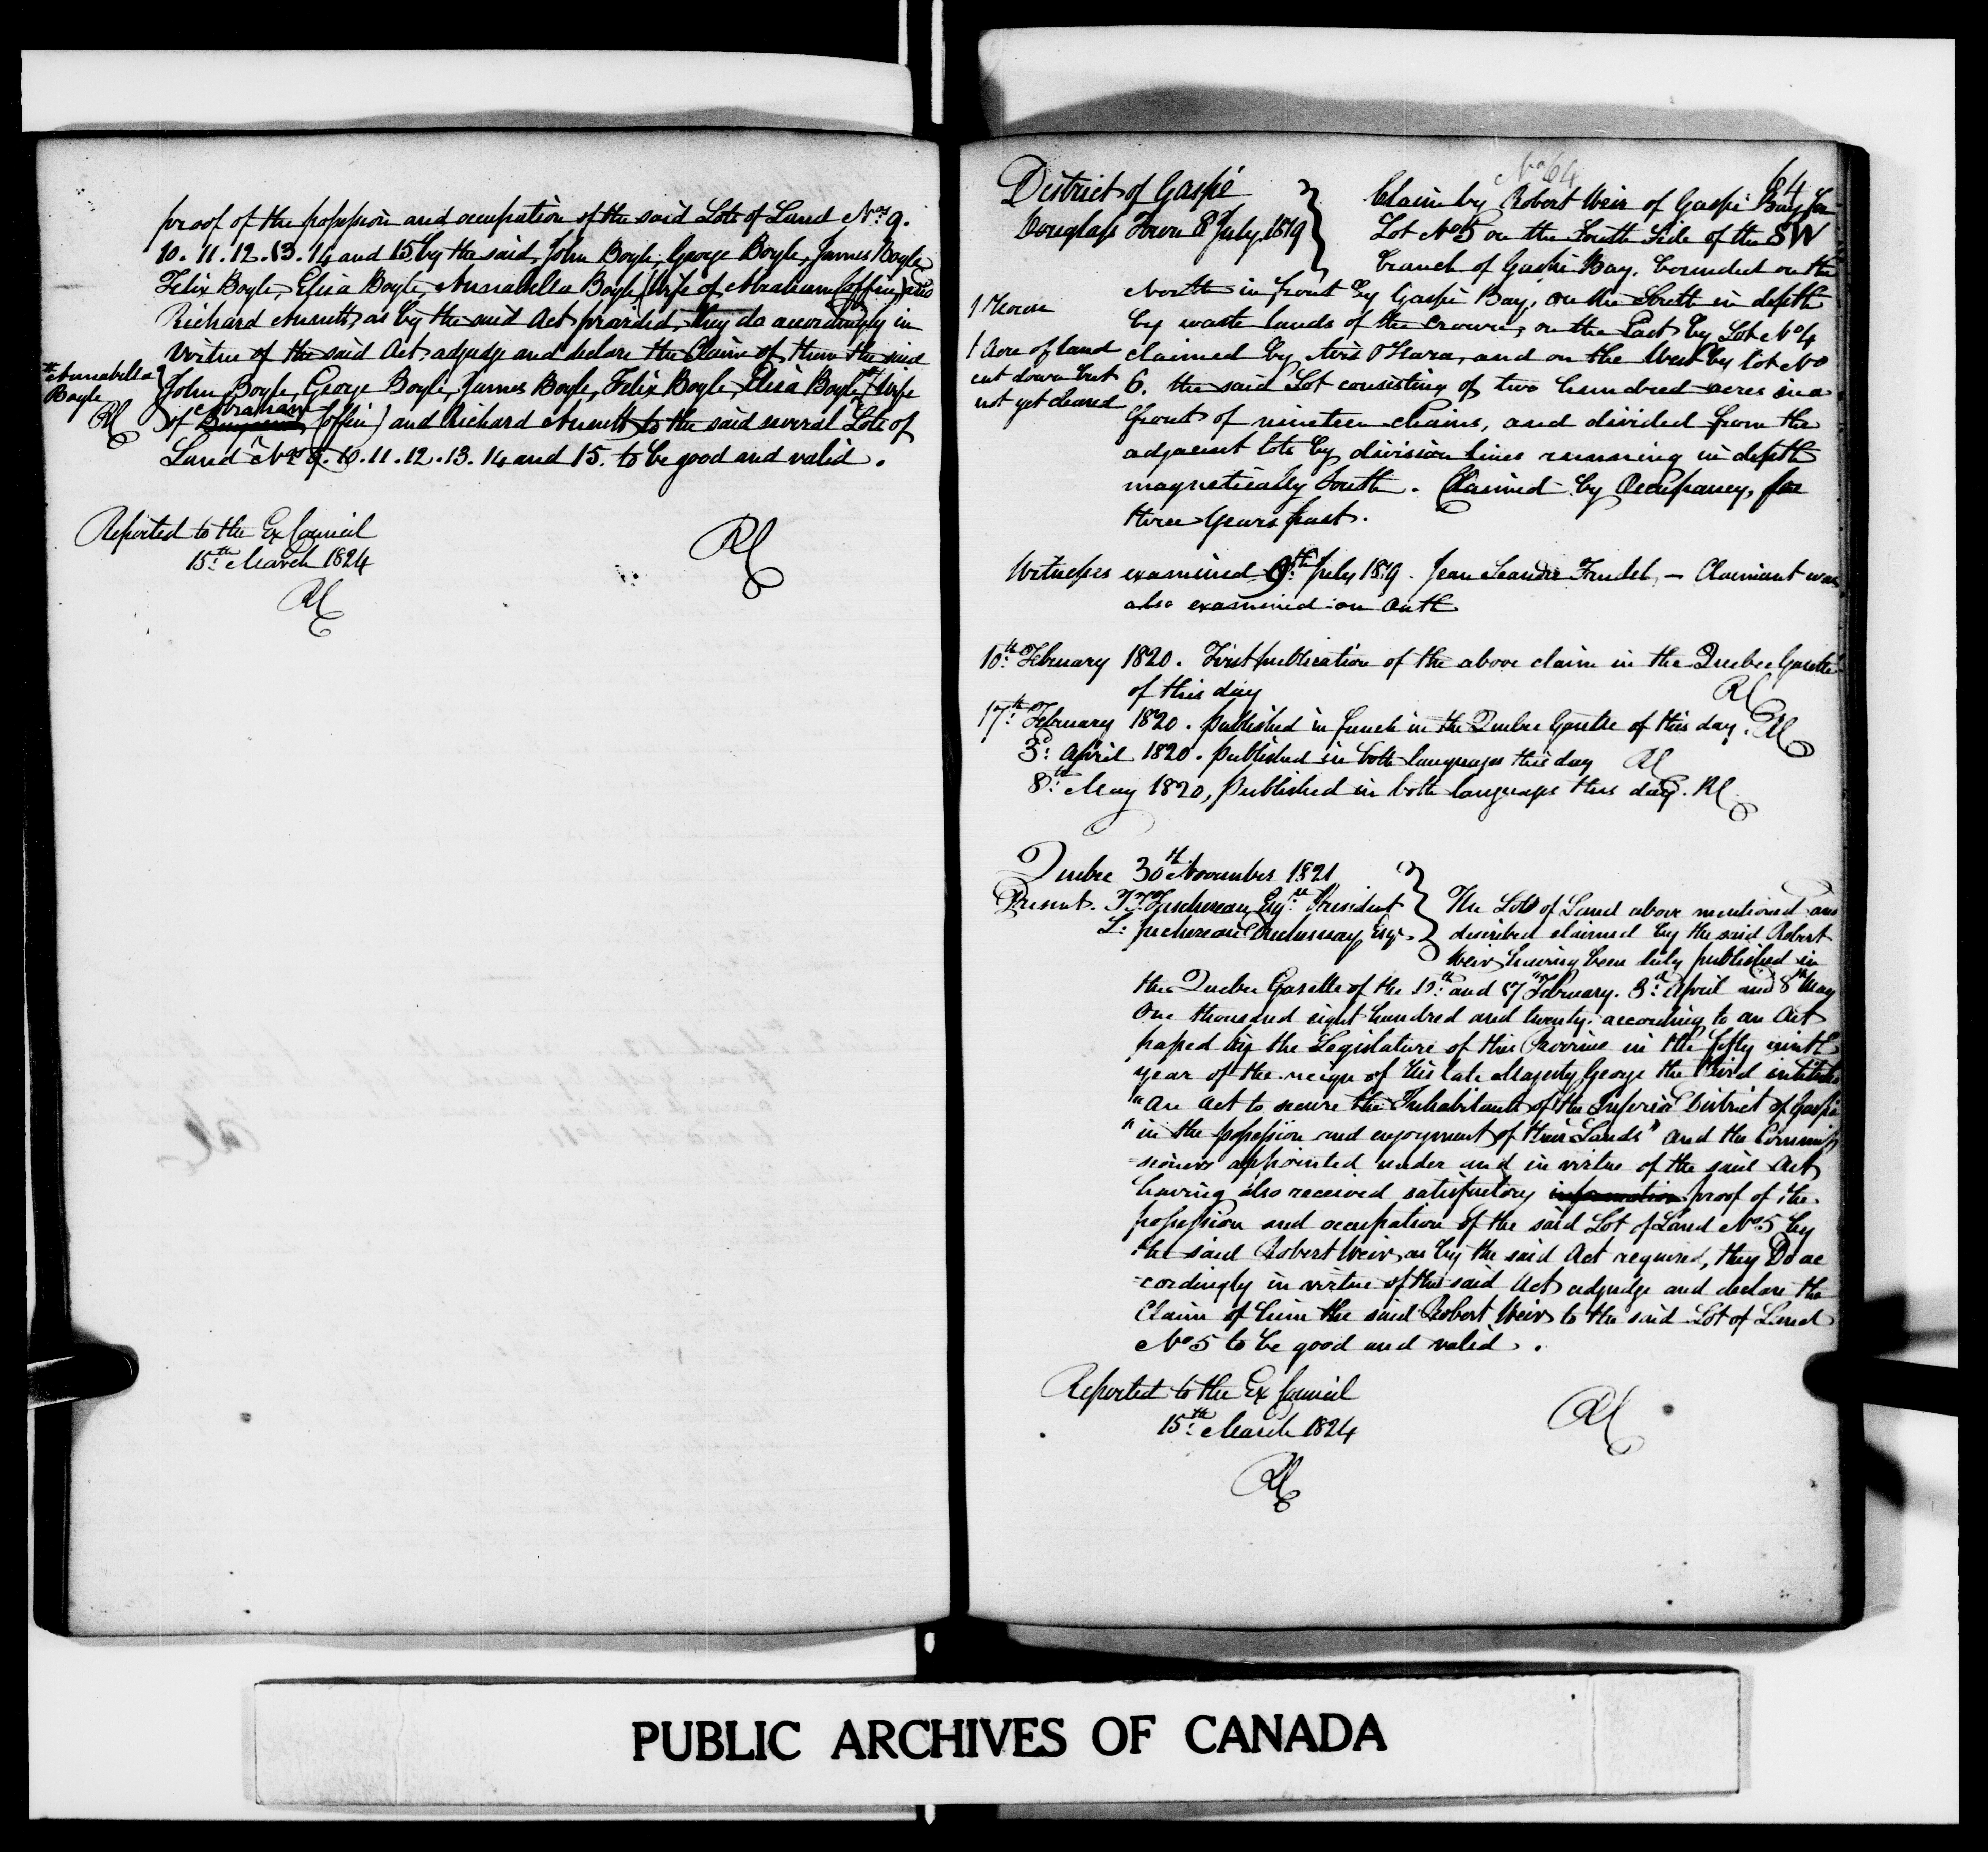 proof of the possession and occupation of the said Lots of Land Nos 9.
10. 11. 12. 13. 14 and 15 by the said John Boyle, George Boyle, James Boyle
Felix Boyle, Elisa Boyle, Annabella Boyle (Wife of Abraham Coffin) and
Richard Annett, as by the said Act provided, they do accordingly in
virtue of the said Act adjudge and declare the Claim of them the said
John Boyle, George Boyle, James Boyle, Felix Boyle, Elisa Boyle (Wife
Annabella
Boyle
RC
Abraham
of Coffin) and Richard Annett to the said several Lots of
Land Nos 9. 10. 11. 12. 13. 14 and 15. to be good and valid.
Reported to the Ex Council
15th March 1824
RC
RC
No 64
64
District of Gaspé
Douglass Town 8th July 1819
Claim by Robert Weir of Gaspé Bay for
Lot No 5 on the South Side of the SW
branch of Gaspé Bay, bounded on the
North in front by Gaspé Bay, on the South in depth
by waste lands of the Crown, on the East by Lot No 4
claimed by Avis O'Hara, and on the West by lot No
6. the said Lot consisting of two hundred acres in a
front of nineteen chains, and divided from the
adjacent lots by division lines running in depth
magnetically South. Claimed by Occupancy, for
three years past.
1 House
1 Acre of land
cut down but
not yet cleared
Witnesses examined 9th July 1819. Jean Leandre - Claimant was
also examined on Oath
10th February 1820. First publication of the above claim in the Quebec Gazette
of this day RC
17th February 1820. published in french in the Quebec Gazette of this day. RC
3d April 1820. published in both languages this day RC
8th May 1820, published in both languages this day. RC
Quebec 30th November 1821
Present. Taschereau Esqr President
L: Juchereau Duchesnay Esqr.
The Lots of Land above mentioned and
described claimed by the said Robert
Weir having been duly published in
the Quebec Gazette of the 10th and 17th February. 3d April and 8th May
One thousand eight hundred and twenty. according to an Act
passed by the Legislature of this Province in the fifty ninth
year of the reign of His late Majesty George the Third intituled
"An Act to secure the Inhabitants of the Inferior District of Gaspé
"in the possession and enjoyment of their Lands" and the Commis
=sioners appointed under and in virtue of the said Act
having also received satisfactory information proof of the
possession and occupation of the said Lot of Land No 5 by
the said Robert Weir, as by the said Act required, they Do ac
=cordingly in virtue of the said Act adjudge and declare the
Claim of him the said Robert Weir to the said Lot of Land
No 5 to be good and valid.
Reported to the Ex Council
15th March 1824
RC
RC
PUBLIC ARCHIVES OF CANADA